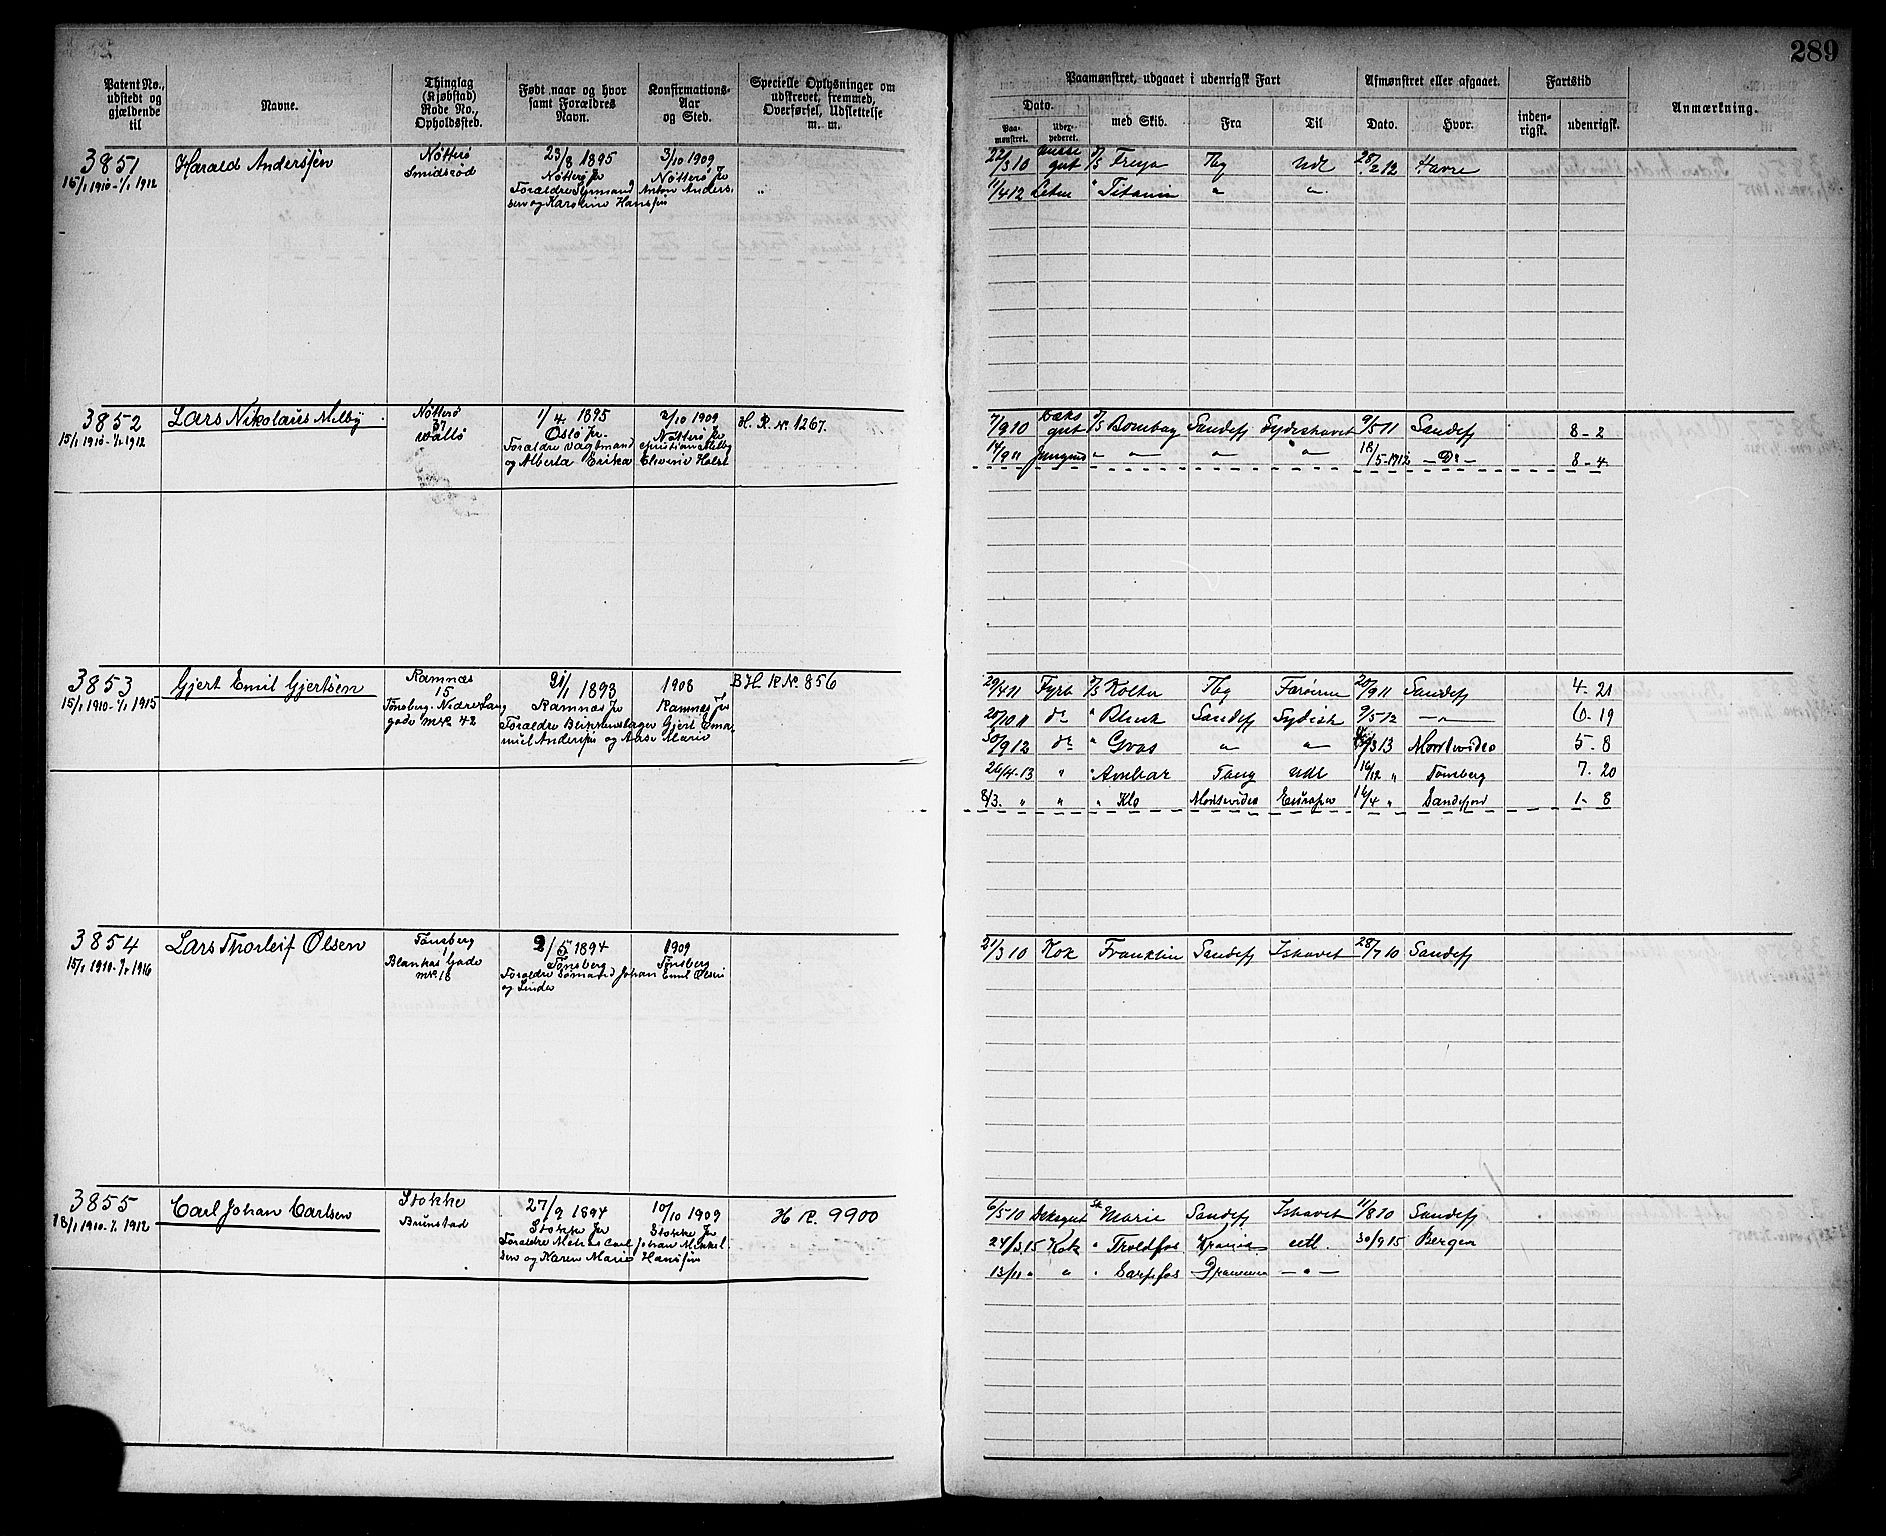 289
Patent No., udstedt og gjældende til
Navne.
Thinglag (Kjøbstad) Rode No., Opholdssted.
Født naar og hvor samt Forældres Navn.
Konfirmations- Aar og Sted.
Specielle Oplysninger om udskrevet, fremmed, Overførsel, Udslettelse m. m.
Paamønstret, udgaaet i udenrigsk Fart
Afmønstret eller afgaaet.
Fartstid
Anmærkning.
Dato.
med Skib.
Fra
Til
Dato.
Hvor.
inden- rigsk.
udenrigsk.
Paa- mønstret.
3851
Harald Anderssen
Nøtterø
Smidsrød
23/8 1895
Nøtterø
3/10 1909
Nøtterø
15/1 1910 - 1/1 1912
Forældre Sømand Anton Anders-
sen og Karoline Hanssen
22/3 10 gut Freya Tbg Udl 28/2 12 Havre
11/4 12 " Titania " "
3852
Lars Nikolaus Melby
Nøtterø
37
Vallø
1/4 1895
Oslo
2/10 1909
Nøtterø
H. R. Nr 1267.
15/1 1910 - 1/1 1912
Forældre Dagtmand Christian Melby
og Alberta Erika Elverie Holst
7/9 10 gut Bombay Sandefj Sydishavet 9/5 11 Sandefj 8 - 2
14/9 11 Jungmd " " " " 18/5 - 1912 - Do - 8 - 4
3853
Gjert Emil Gjertsen
Ramnæs
15
Tønsberg. Nedre Lang
gade Nr. 42
1893
Ramnæs
1908
Ramnæs
B H. R No. 856
15/1 1910 - 1/1 1915
Forældre Blikkenslager Gjert Ema-
nuel Anderssen og Aase Marie
29/4 11 Fyrb Kolter Tbg Færøerne 20/9 11 Sandefj 4 - 21
20/10 11 do " Sandefj Sydish 9/5 12 - " - 6 - 19
30/9 12 do " Gvas " " /3 13 Montevideo 5 - 8
26/4 - 13 " " Ambar Tbrg Udl 16/12 " Tønsberg 7 - 20
8/3 . " " " Klo Montevideo Europa 16/4 " Sandefjord 1 - 8
3854
Lars Thorleif Olsen
Tønsberg
1
Blankas Gade
nr. 18
2/5 1894
Tønsberg
1909
Tønsberg
15/1 1910 - 1/1 1916
Forældre Sømand Johan Emil Olsen
og Linda
21/3 10 Kok Franklin Sandefj Ishavet 28/7 10 Sandefj
3855
Carl Johan Carlsen
Stokke
Brunstad
27/9 1894
Stokke
10/10 1909
Stokke
H R. 9900
18/1 1910 - 1/1 1912
Forældre Matros Carl Johan Mikkel-
sen og Karen Marie Hanssen
6/5 - 10 Deksgut Marie Sandefj Ishavet 11/8 10 Sandefj
24/3 . 15 Kok " Troldfos Kra­nia utl. 30/9 15 Bergen
13/11 " " " Sarpfos Drammen - " -